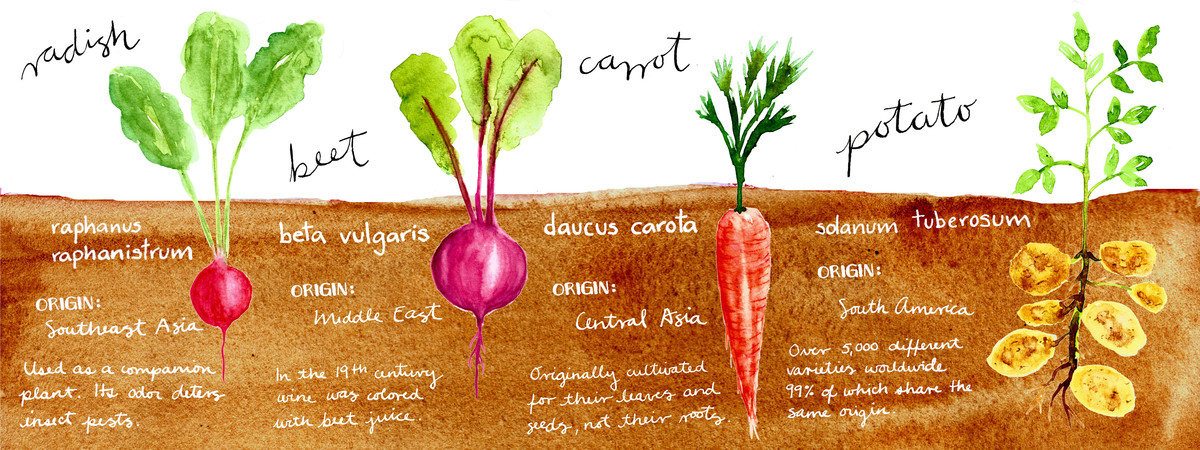 radish
raphanus
raphanistrum
ORIGIN:
Southeast Asia
Used as a companion
plant. Its odor deters
insect pests.
beet
beta vulgaris
ORIGIN:
Middle East
In the 19th century
wine was colored
with beet juice.
carrot
daucus carota
ORIGIN:
Central Asia
Originally cultivated
for their leaves and
seeds, not their roots.
potato
solanum tuberosum
ORIGIN:
South America
Over 5,000 different
varieties worldwide
99% of which share the
same origin.